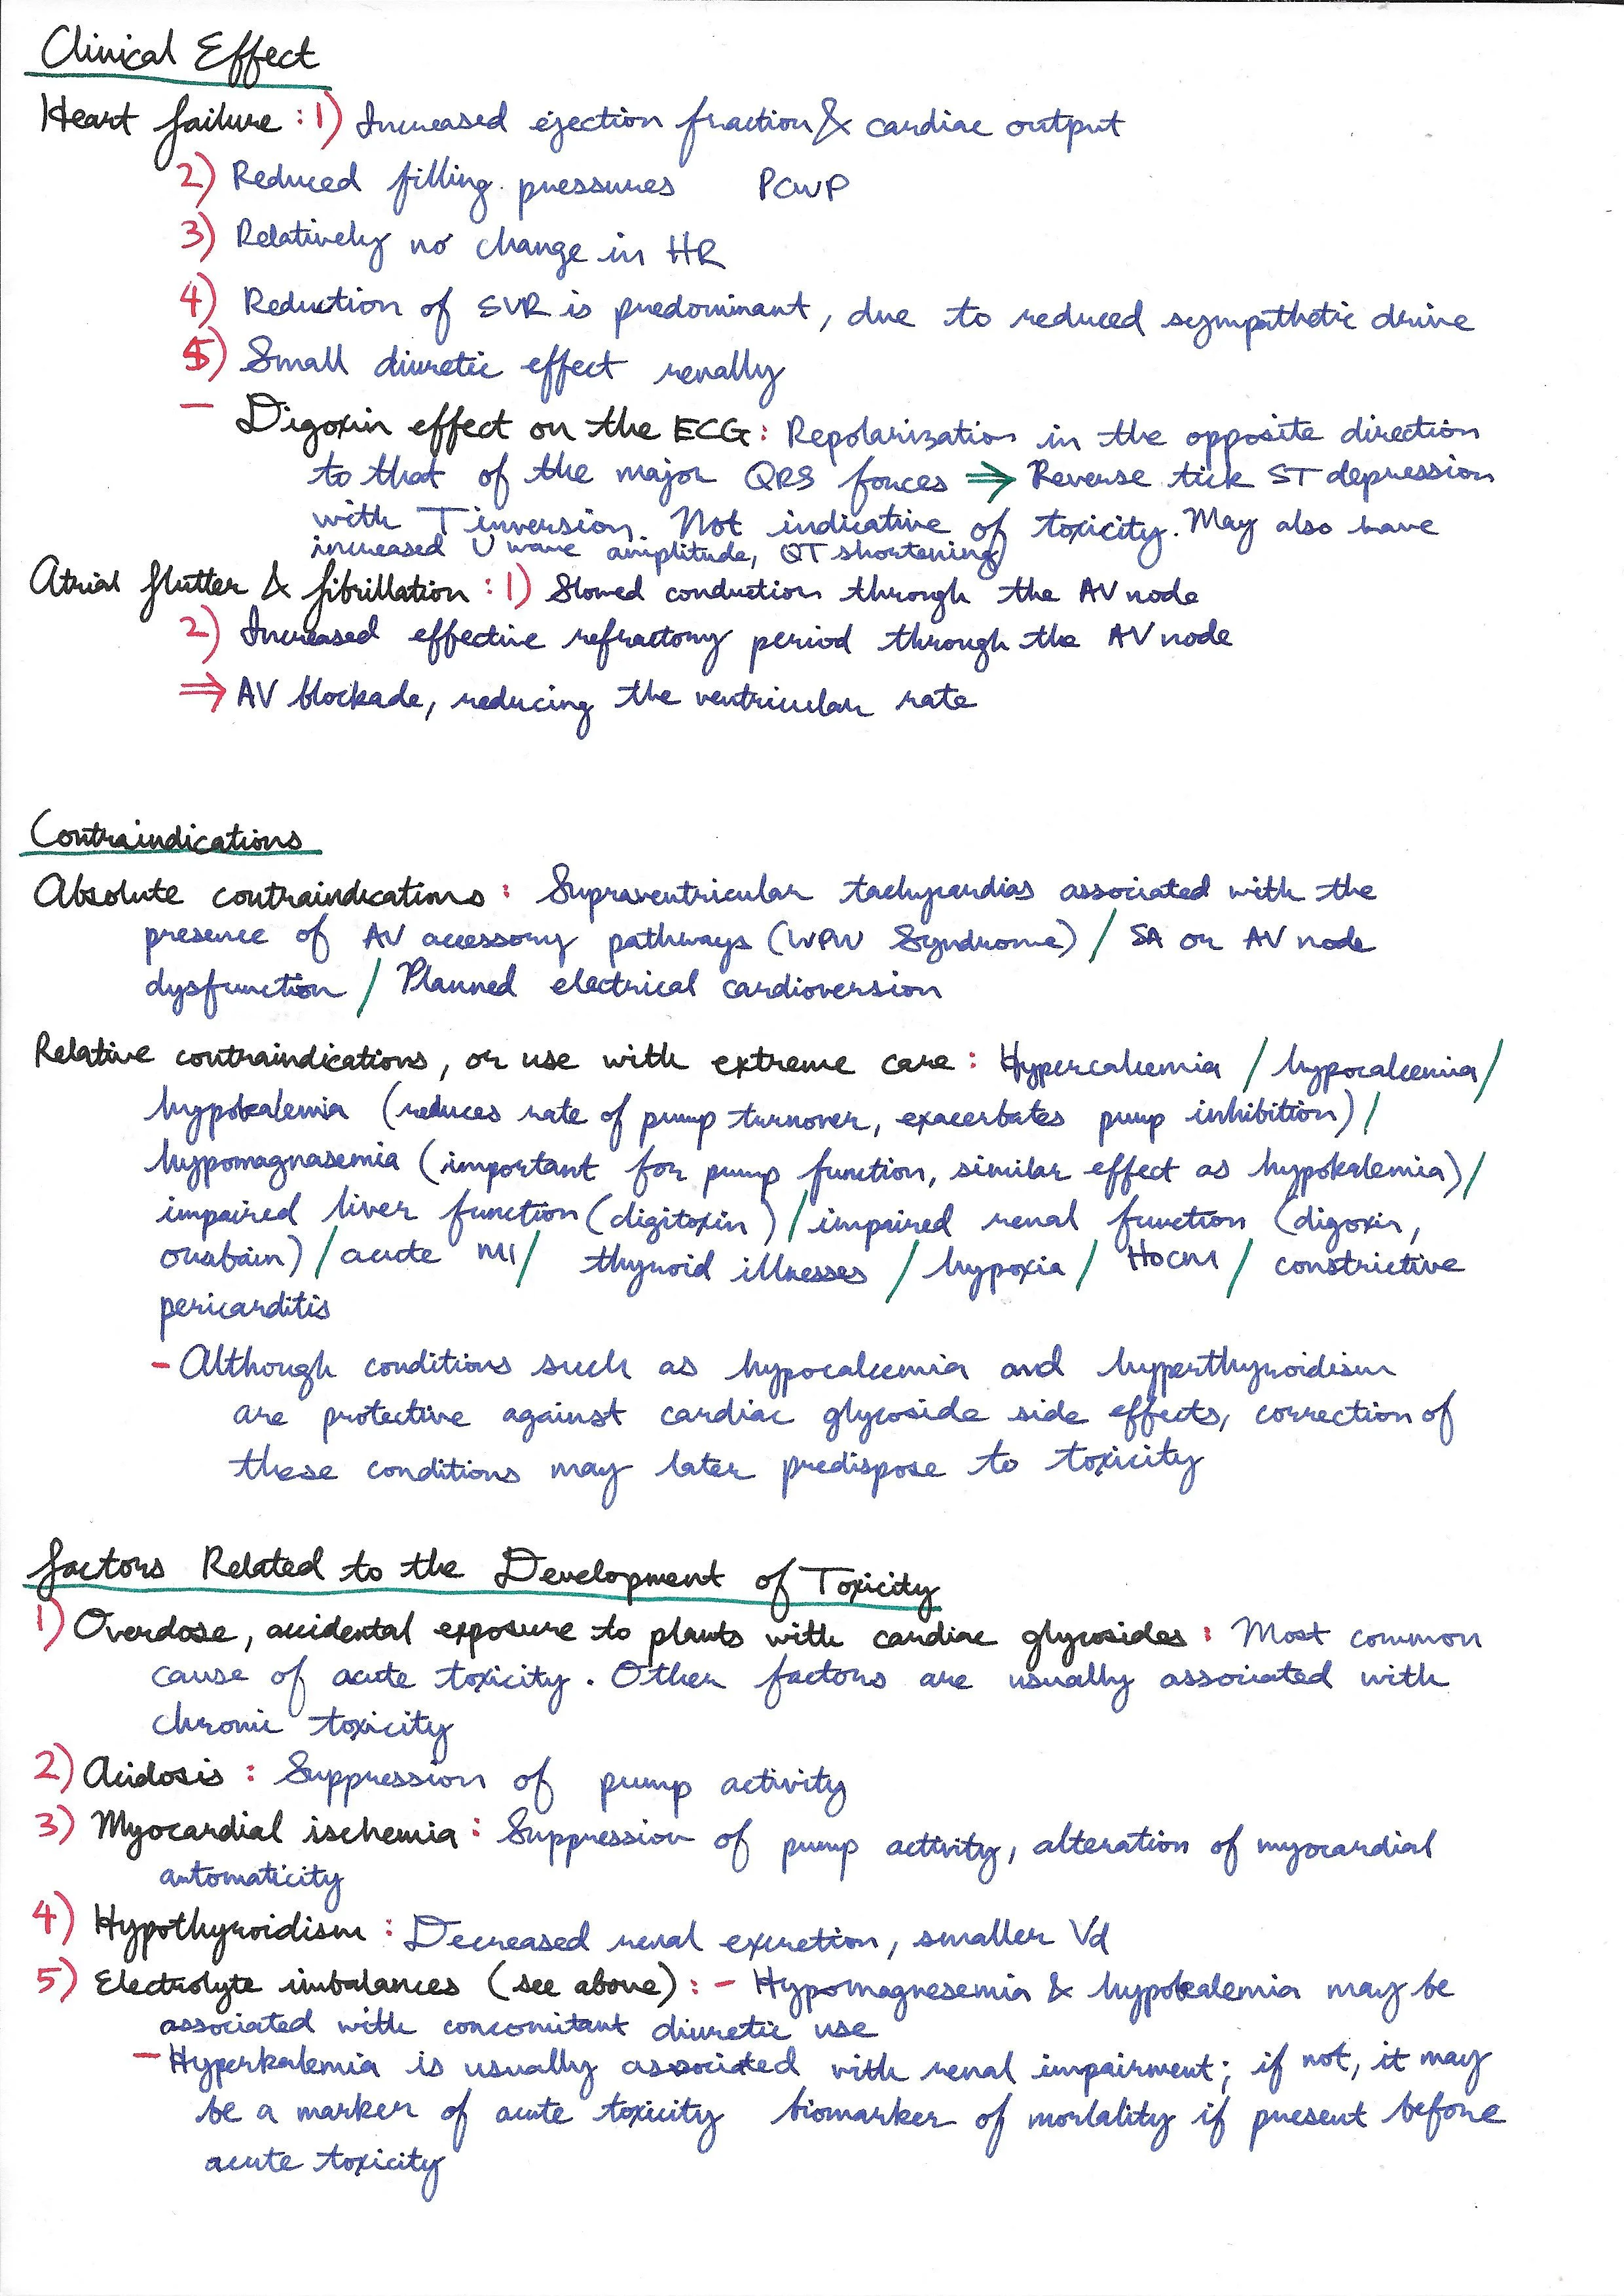 Clinical Effect
Heart failure : 1) Increased ejection fraction & cardiac output
2) Reduced filling pressures PCWP
3) Relatively no change in HR
4) Reduction of SVR is predominant, due to reduced sympathetic drive
5) Small diuretic effect renally
— Digoxin effect on the ECG: Repolarization in the opposite direction
to that of the major QRS forces ⇒ Reverse tick ST depression
with T inversion. Not indicative of toxicity. May also have
increased U wave amplitude, QT shortening
Atrial flutter & fibrillation : 1) Slowed conduction through the AV node
2) Increased effective refractory period through the AV node
⇒ AV blockade, reducing the ventricular rate
Contraindications
Absolute contraindications : Supraventricular tachycardias associated with the
presence of AV accessory pathways (WPW Syndrome) / SA or AV node
dysfunction / Planned electrical cardioversion
Relative contraindications, or use with extreme care : Hypercalcemia / hypocalcemia /
hypokalemia (reduces rate of pump turnover, exacerbates pump inhibition) /
hypomagnasemia (important for pump function, similar effect as hypokalemia) /
impaired liver function (digitoxin) / impaired renal function (digoxin,
ouabain) / acute MI / thyroid illnesses / hypoxia / HOCM / constrictive
pericarditis
- Although conditions such as hypocalcemia and hyperthyroidism
are protective against cardiac glycoside side effects, correction of
these conditions may later predispose to toxicity
Factors Related to the Development of Toxicity
1) Overdose, accidental exposure to plants with cardiac glycosides : Most common
cause of acute toxicity. Other factors are usually associated with
chronic toxicity
2) Acidosis : Suppression of pump activity
3) Myocardial ischemia : Suppression of pump activity, alteration of myocardial
automaticity
4) Hypothyroidism : Decreased renal excretion, smaller Vd
5) Electrolyte imbalances (see above) : - Hypomagnesemia & hypokalemia may be
associated with concomitant diuretic use
- Hyperkalemia is usually associated with renal impairment; if not, it may
be a marker of acute toxicity biomarker of mortality if present before
acute toxicity